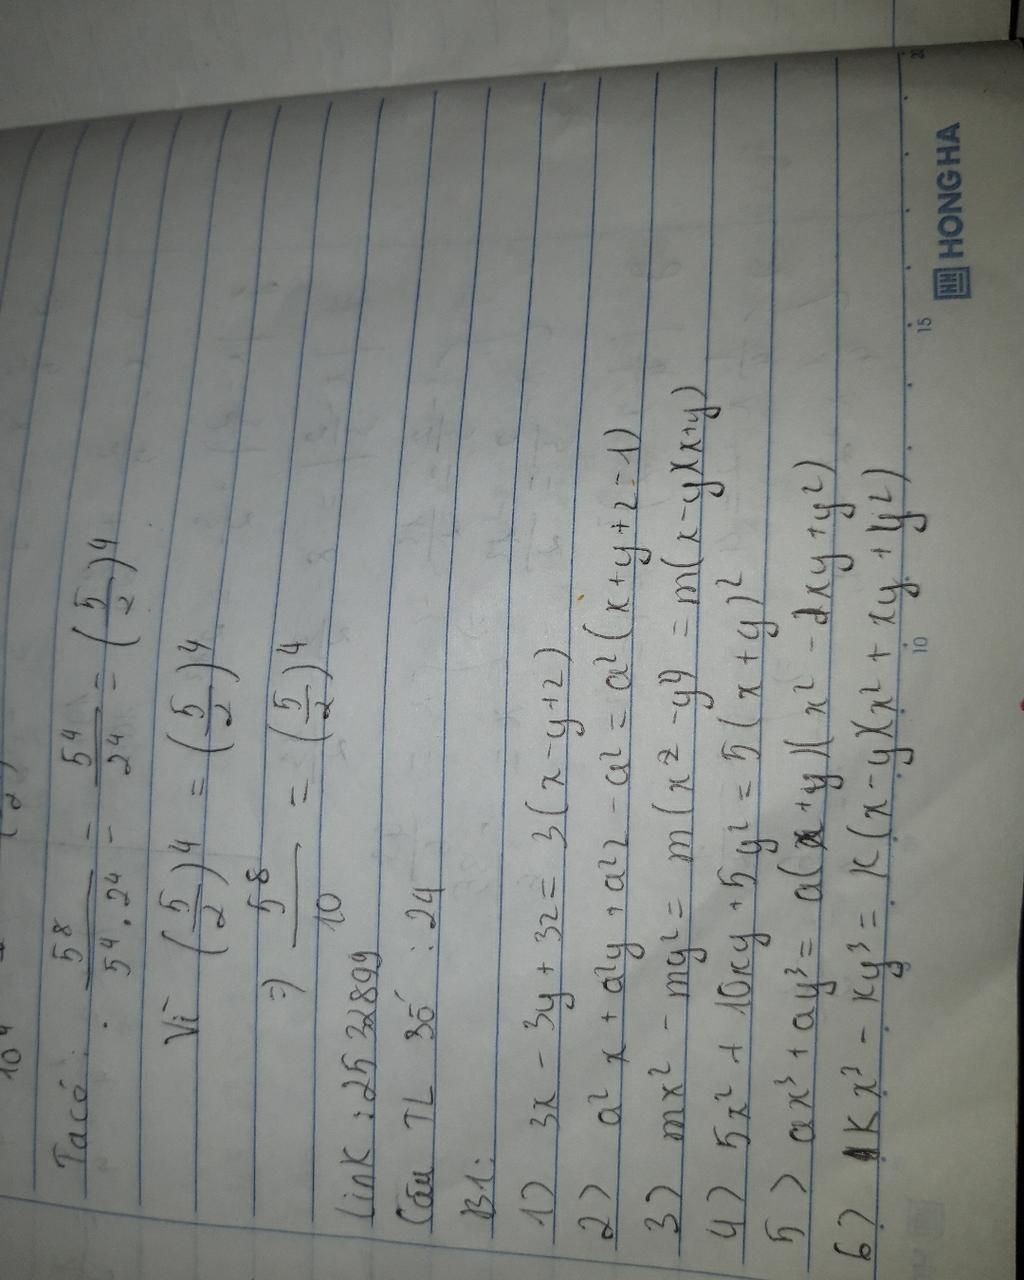 10⁴
Ta có: 5⁸ / 5⁴.2⁴ = 5⁴ / 2⁴ = (5/2)⁴
Vì (5/2)⁴ = (5/2)⁴
=> 5⁸ / 10 = (5/2)⁴
Link: 2532899
Câu TL số: 24
B1:
1> 3x - 3y + 3z = 3(x-y+z)
2> a²x + a²y + a²z - a² = a²(x+y+z-1)
3> mx² - my² = m(x² - y²) = m(x-y)(x+y)
4> 5x² + 10xy + 5y² = 5(x+y)²
5> ax³ + ay³ = a(x+y)(x² - xy + y²)
6> Kx³ - Ky³ = K(x-y)(x² + xy + y²)
10 15 20
HONG HA